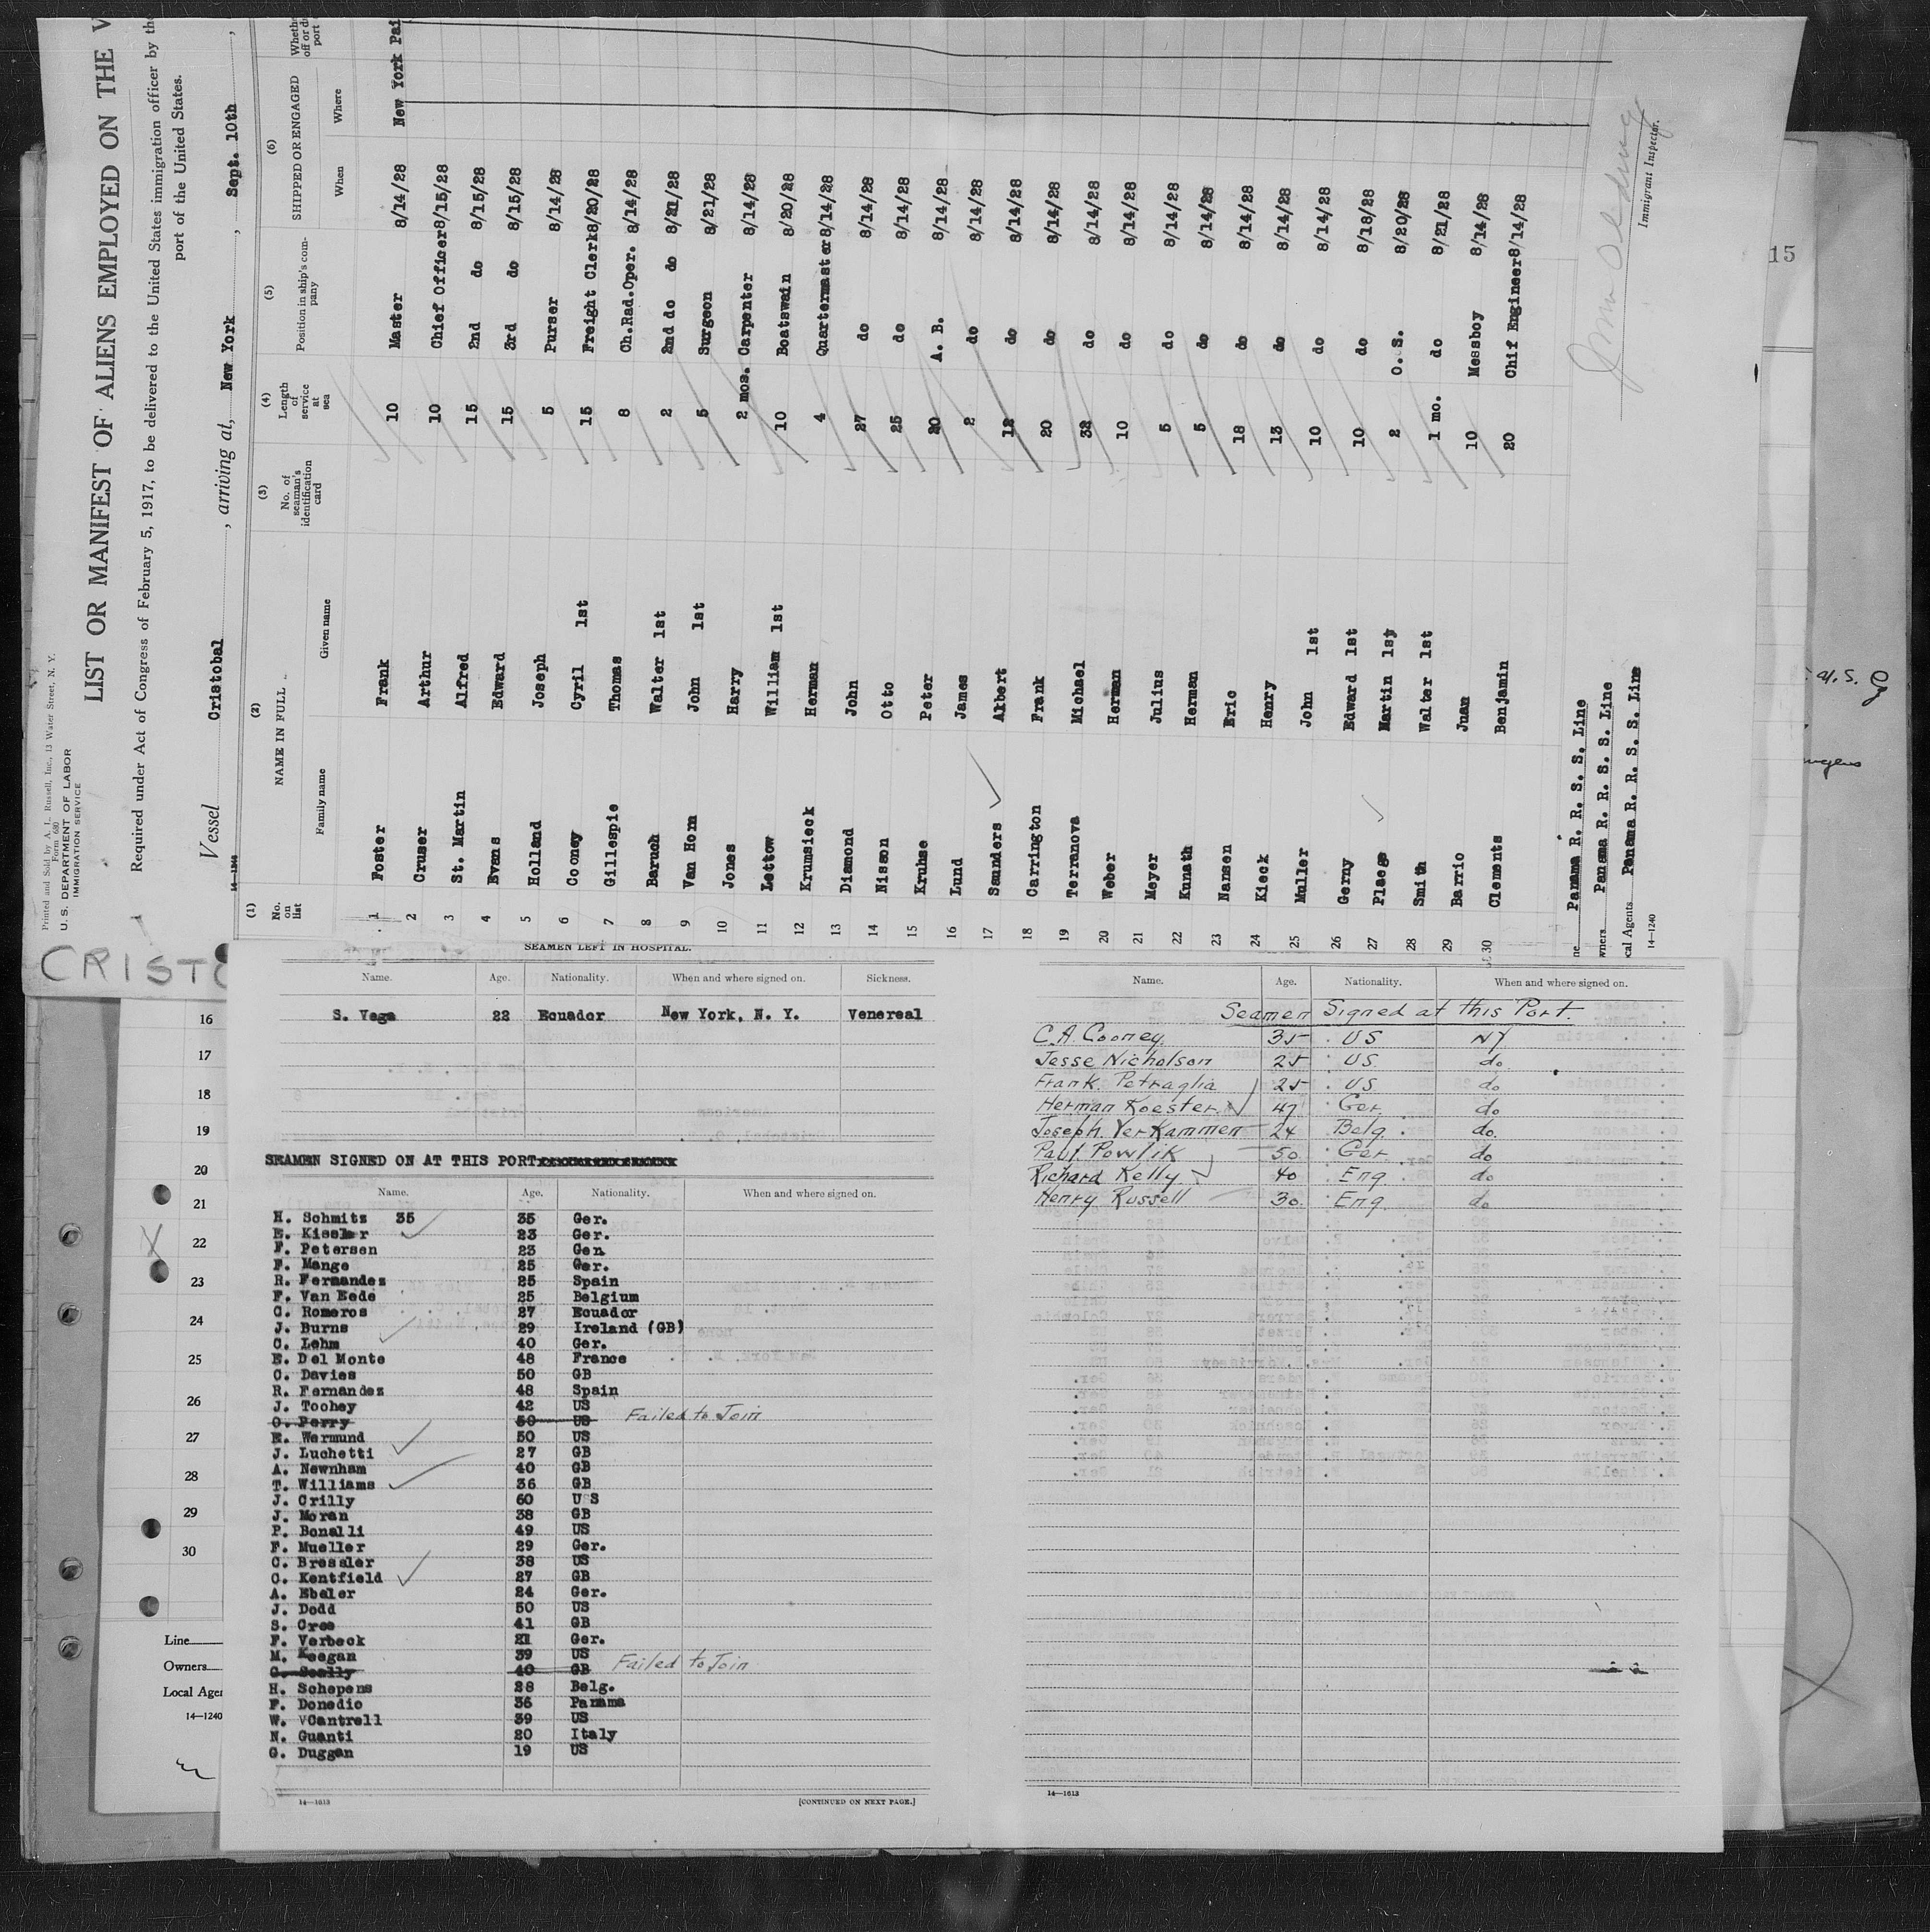 Printed and Sold by A. L. Russell, Inc., 13 Water Street, N. Y.
Form 680
U. S. DEPARTMENT OF LABOR
IMMIGRATION SERVICE
LIST OR MANIFEST OF ALIENS EMPLOYED ON THE V
Required under Act of Congress of February 5, 1917, to be delivered to the United States immigration officer by the
port of the United States.
Vessel Cristobal, arriving at, New York, Sept. 10th,
14-1240
(1) (2) (3) (4) (5) (6)
No. on list NAME IN FULL No. of seaman's identification card Length of service at sea Position in ship's company SHIPPED OR ENGAGED Wheth off or d port
Family name Given name When Where
1 Foster Frank 10 Master 8/14/28 New York Pai
2 Cruser Arthur 10 Chief Officer 8/15/28
3 St. Martin Alfred 15 2nd do 8/15/28
4 Evans Edward 15 3rd do 8/15/28
5 Holland Joseph 5 Purser 8/14/28
6 Cooney Cyril 1st 15 Freight Clerk 8/20/28
7 Gillespie Thomas 8 Ch.Rad.Oper. 8/14/28
8 Baruch Walter 1st 2 2nd do do 8/21/28
9 Van Horn John 1st 5 Surgeon 8/21/28
10 Jones Harry 2 mos. Carpenter 8/14/28
11 Lettow William 1st 10 Boatswain 8/20/28
12 Krumsieck Herman 4 Quartermaster 8/14/28
13 Diamond John 27 do 8/14/28
14 Nisson Otto 25 do 8/14/28
15 Kruhse Peter 20 A. B. 8/14/28
16 Lund James 2 do 8/14/28
17 Saunders Albert 12 do 8/14/28
18 Carrington Frank 20 do 8/14/28
19 Terranova Michael 32 do 8/14/28
20 Weber Herman 10 do 8/14/28
21 Meyer Julius 5 do 8/14/28
22 Kunath Herman 5 do 8/14/28
23 Nansen Eric 18 do 8/14/28
24 Kieck Henry 13 do 8/14/28
25 Muller John 1st 10 do 8/14/28
26 Gerny Edward 1st 10 do 8/18/28
27 Plaege Martin 1st 2 O. S. 8/20/28
28 Smith Walter 1st 1 mo. do 8/21/28
29 Barrio Juan 10 Messboy 8/14/28
30 Clements Benjamin 20 Chif Engineer 8/14/28
ne Panama R. R. S. S. Line
wners Panama R. R. S. S. Line
cal Agents Panama R. R. S. S. Line
14-1240
Immigrant Inspector.
CRISTO
15
16
17
18
19
20
21
22
23
24
25
26
27
28
29
30
Line
Owners
Local Age
14-1240
SEAMEN LEFT IN HOSPITAL.
Name. Age. Nationality. When and where signed on. Sickness.
S. Vega 22 Ecuador New York, N. Y. Venereal
SEAMEN SIGNED ON AT THIS PORT
Name. Age. Nationality. When and where signed on.
H. Schmitz 35 35 Ger.
E. Kiesler 23 Ger.
F. Petersen 23 Gen
F. Mange 25 Ger.
R. Fernandez 25 Spain
F. Van Eede 25 Belgium
C. Romeros 27 Ecuador
J. Burns 29 Ireland (GB)
C. Lehm 40 Ger.
E. Del Monte 48 France
C. Davies 50 GB
R. Fernandez 48 Spain
J. Toohey 42 US
O. Perry 50 US Failed to Join
E. Wermund 50 US
J. Luchetti 27 GB
A. Newnham 40 GB
T. Williams 36 GB
J. Crilly 60 U S
J. Moran 38 GB
P. Bonalli 49 US
F. Mueller 29 Ger.
C. Bressler 38 US
C. Kentfield 27 GB
A. Ebeler 24 Ger.
J. Dodd 50 US
S. Cree 41 GB
F. Verbeck 21 Ger.
M. Keegan 39 US
G. Scally 40 GB Failed to Join
H. Schepens 28 Belg.
F. Donedio 36 Panama
W. VCantrell 39 US
N. Guanti 20 Italy
G. Duggan 19 US
14-1613 [CONTINUED ON NEXT PAGE.]
Name. Age. Nationality. When and where signed on.
Seamen Signed at this Port.
C.A. Cooney 35 US NY
Jesse Nicholson 25 US. do
Frank Petraglia 25 US do
Herman Koester 47 Ger. do
Joseph VerKammen 24 Belg. do.
Paul Powlik 50 Ger do
Richard Kelly 40 Eng do
Henry Russell 30 Eng. do
14-1613